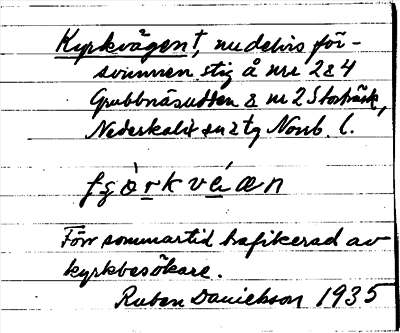 Kyrkvägen†, nu delvis för-
svunnen stig å nr 2 & 4
Grubbnäsudden & nr 2 Storträsk,
Nederkalix sn & tg Norrb. l.
Förr sommartid trafikerad av
kyrkbesökare.
Ruben Danielsson 1935